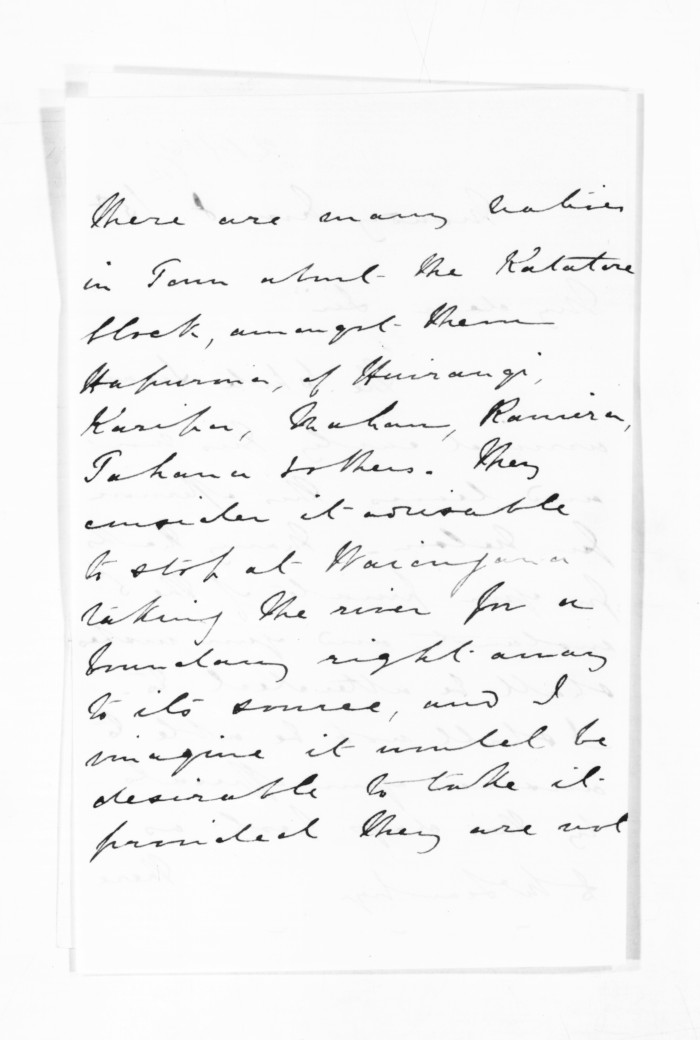 there are many natives
in Town about the Katatore
block, amongst them
Hapurona, of Huirangi,
Karipa, Mahau, Ramiera,
Tahana & others. They
consider it advisable
to stop at Waiongana
taking the river for a
boundary right away
to its source, and I
imagine it would be
desirable to take it
provided they are not